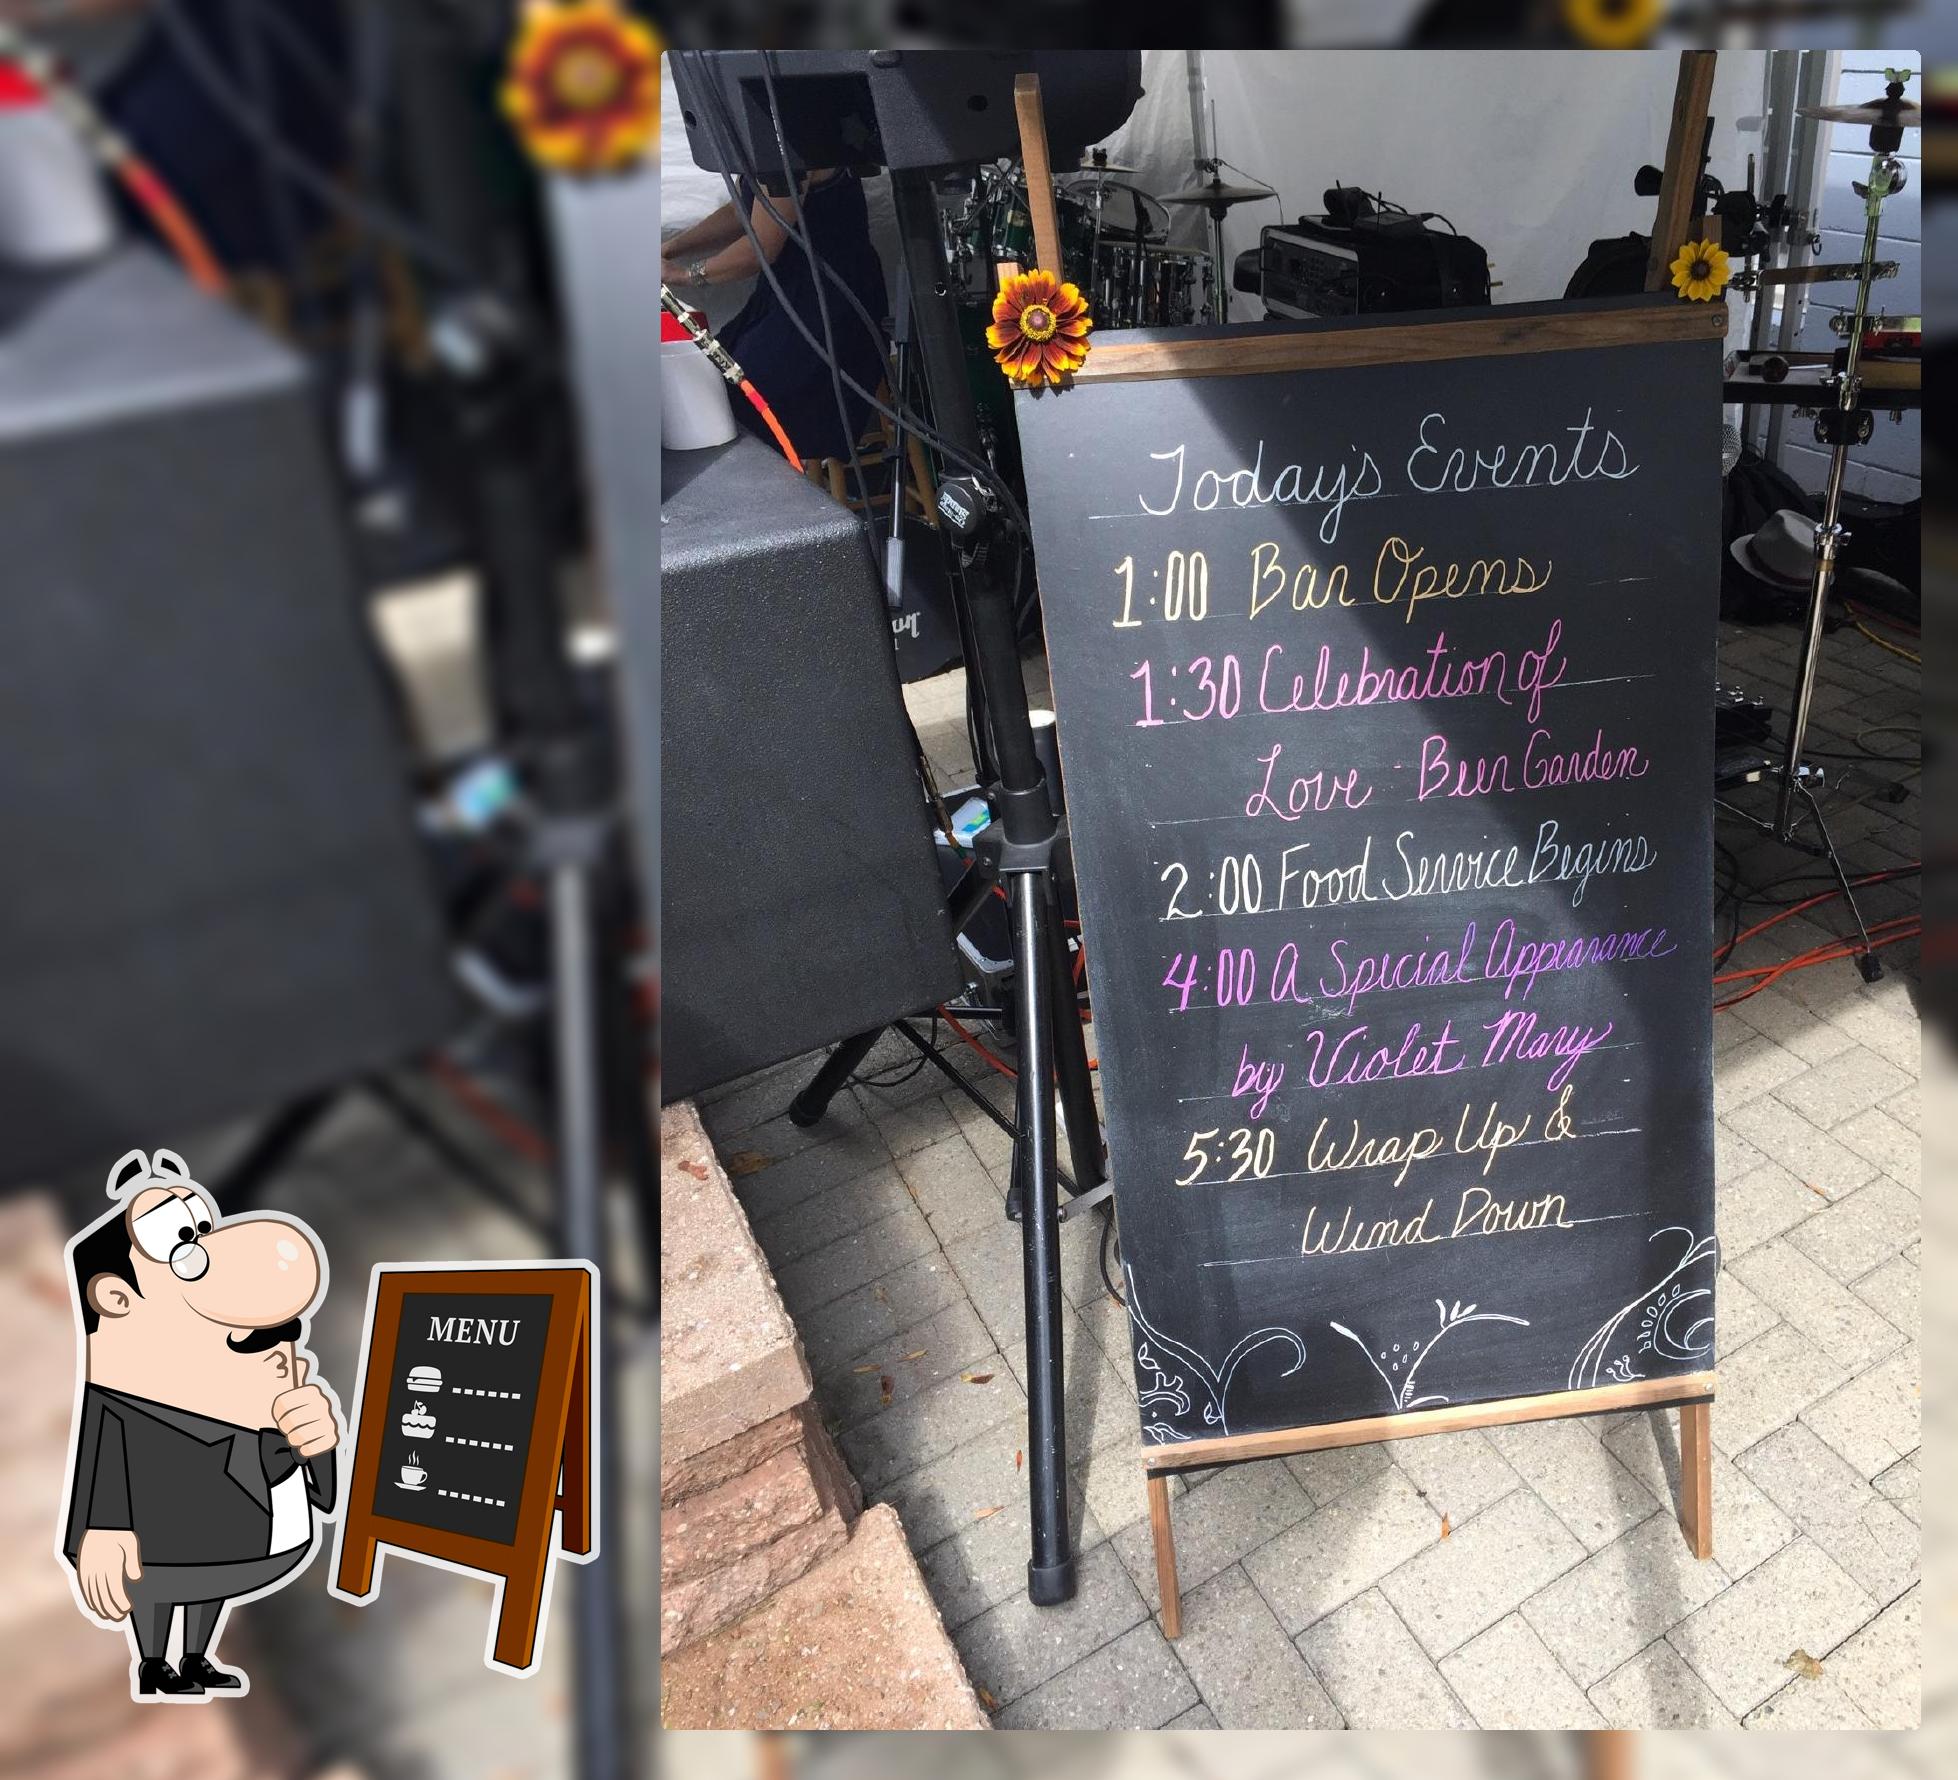 Today's Events
1:00 Bar Opens
1:30 Celebration of
Love - Beer Garden
2:00 Food Service Begins
4:00 A Special Appearance
by Violet Mary
5:30 Wrap Up &
Wind Down
MENU